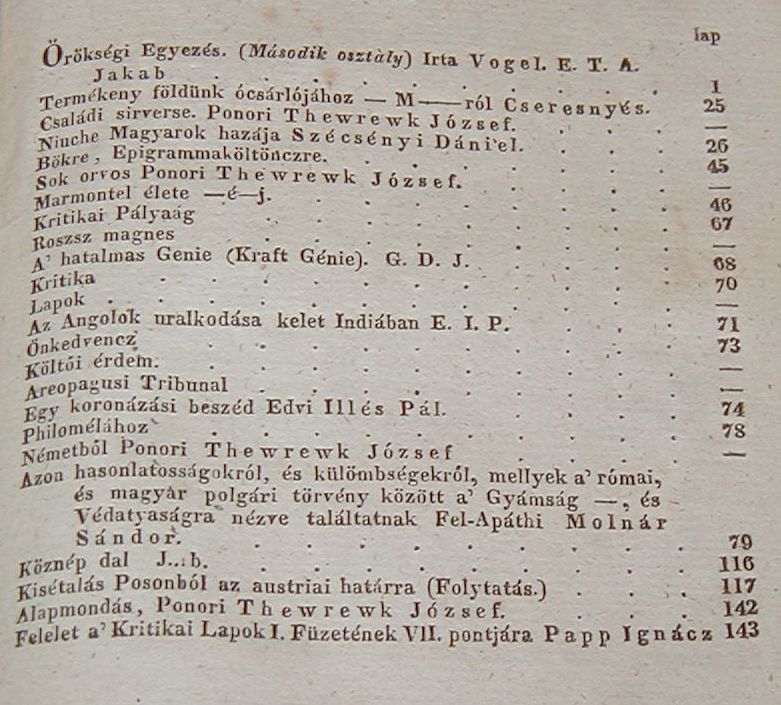 lap
Örökségi Egyezés. (Második osztály) Irta Vogel. E. T. A.
Jakab . . . . . . . . . 1
Termékeny földünk ócsárlójához — M——ról Cseresnyés. 25
Családi sirverse. Ponori Thewrewk József. . . . —
Niuche Magyarok hazája Szécsényi Dániel. . . . 26
Bökre, Epigrammaköltönczre. . . . . . . 45
Sok orvos Ponori Thewrewk József. . . . . —
Marmontel élete —é—j. . . . . . . . 46
Kritikai Pályaág . . . . . . . . 67
Roszsz magnes . . . . . . . . —
A' hatalmas Genie (Kraft Génie). G. D. J. . . . . 68
Kritika . . . . . . . . . 70
Lapok . . . . . . . . . —
Az Angolok uralkodása kelet Indiában E. I. P. . . . 71
Önkedvencz . . . . . . . . 73
Költői érdem. . . . . . . . . —
Areopagusi Tribunal . . . . . . . —
Egy koronázási beszéd Edvi Illés Pál. . . . . 74
Philomélához . . . . . . . . 78
Németből Ponori Thewrewk József . . . . —
Azon hasonlatosságokról, és külömbségekról, mellyek a' római,
és magyar polgári törvény között a' Gyámság —, és
Védatyaságra nézve találtatnak Fel-Apáthi Molnár
Sándor. . . . . . . . . 79
Köznép dal J..:b. . . . . . . . 116
Kisétalás Posonból az austriai határra (Folytatás.) . . . 117
Alapmondás, Ponori Thewrewk József. . . . . 142
Felelet a' Kritikai Lapok I. Füzetének VII. pontjára Papp Ignácz 143